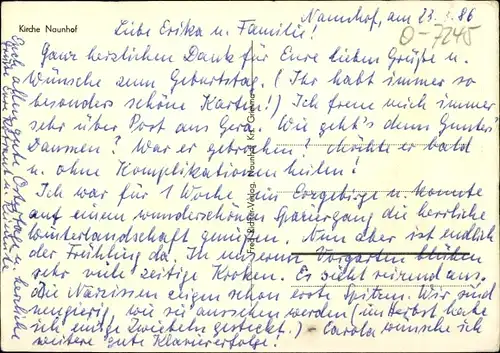 Kirche Naunhof
Naunhof, am 23.3.86
O-7245
Liebe Erika u. Familie!
Ganz herzlichen Dank für Eure lieben Grüße u.
Wünsche zum Geburtstag. (Ihr habt immer so
besonders schöne Karten!) Ich freue mich immer
sehr über Post aus Gera. Wie geht's denn Gunters
Daumen? War er gebrochen? Möchte er bald
u. ohne Komplikationen heilen!
Ich war für 1 Woche im Erzgebirge u. konnte
auf einem wunderschönen Spaziergang die herrliche
Winterlandschaft genießen. Nun aber ist endlich
der Frühling da. In unserem Vorgarten blühen
sehr viele zeitige Kroken. Es sieht reizend aus.
Die Narzissen zeigen schon erste Spitzen. Wir sind
neugierig, wie sie aussehen werden (im Herbst habe
ich einige Zwiebeln gesteckt.) - Carola wünsche ich
weitere gute Klaviererfolge!
Euch allen gute Ostertage u. herzliche
Grüße Eure
Verlag, Naunhof Krs. Grimma